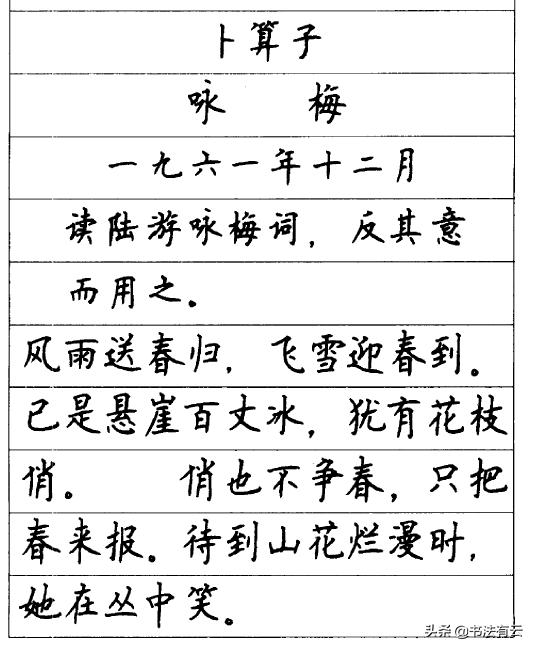 卜算子
咏 梅
一九六一年十二月
读陆游咏梅词，反其意
而用之。
风雨送春归，飞雪迎春到。
已是悬崖百丈冰，犹有花枝
俏。 俏也不争春，只把
春来报。待到山花烂漫时，
她在丛中笑。
头条 @书法有云